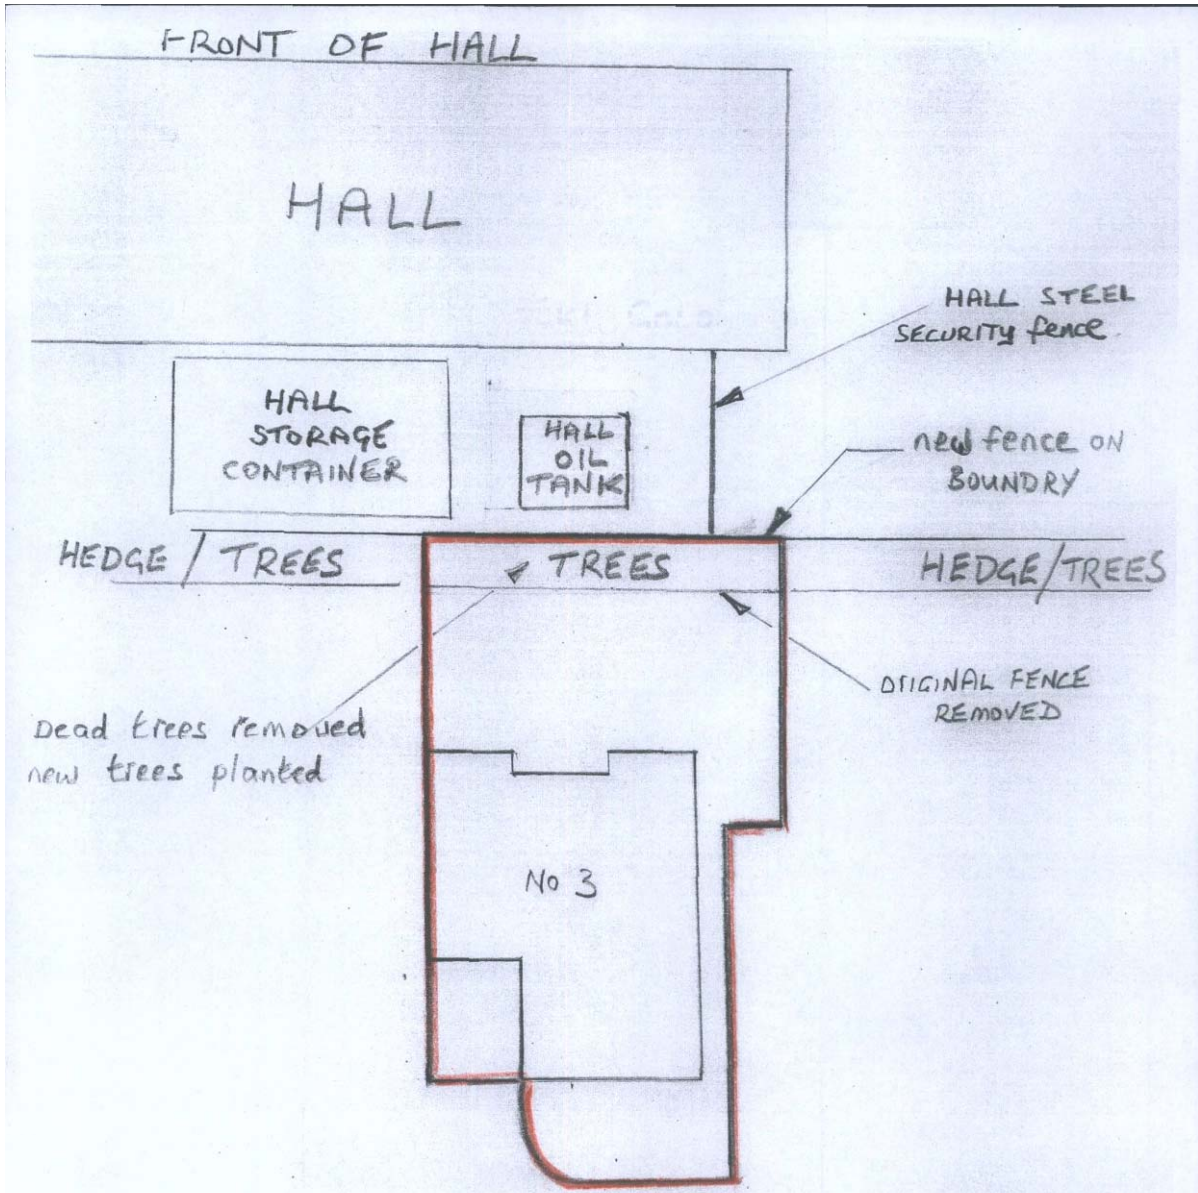 FRONT OF HALL
HALL
HALL STEEL
SECURITY fence
HALL
STORAGE
CONTAINER
HALL
OIL
TANK
new fence ON
BOUNDRY
HEDGE / TREES
TREES
HEDGE/TREES
ORIGINAL FENCE
REMOVED
Dead trees removed
new trees planted
No 3